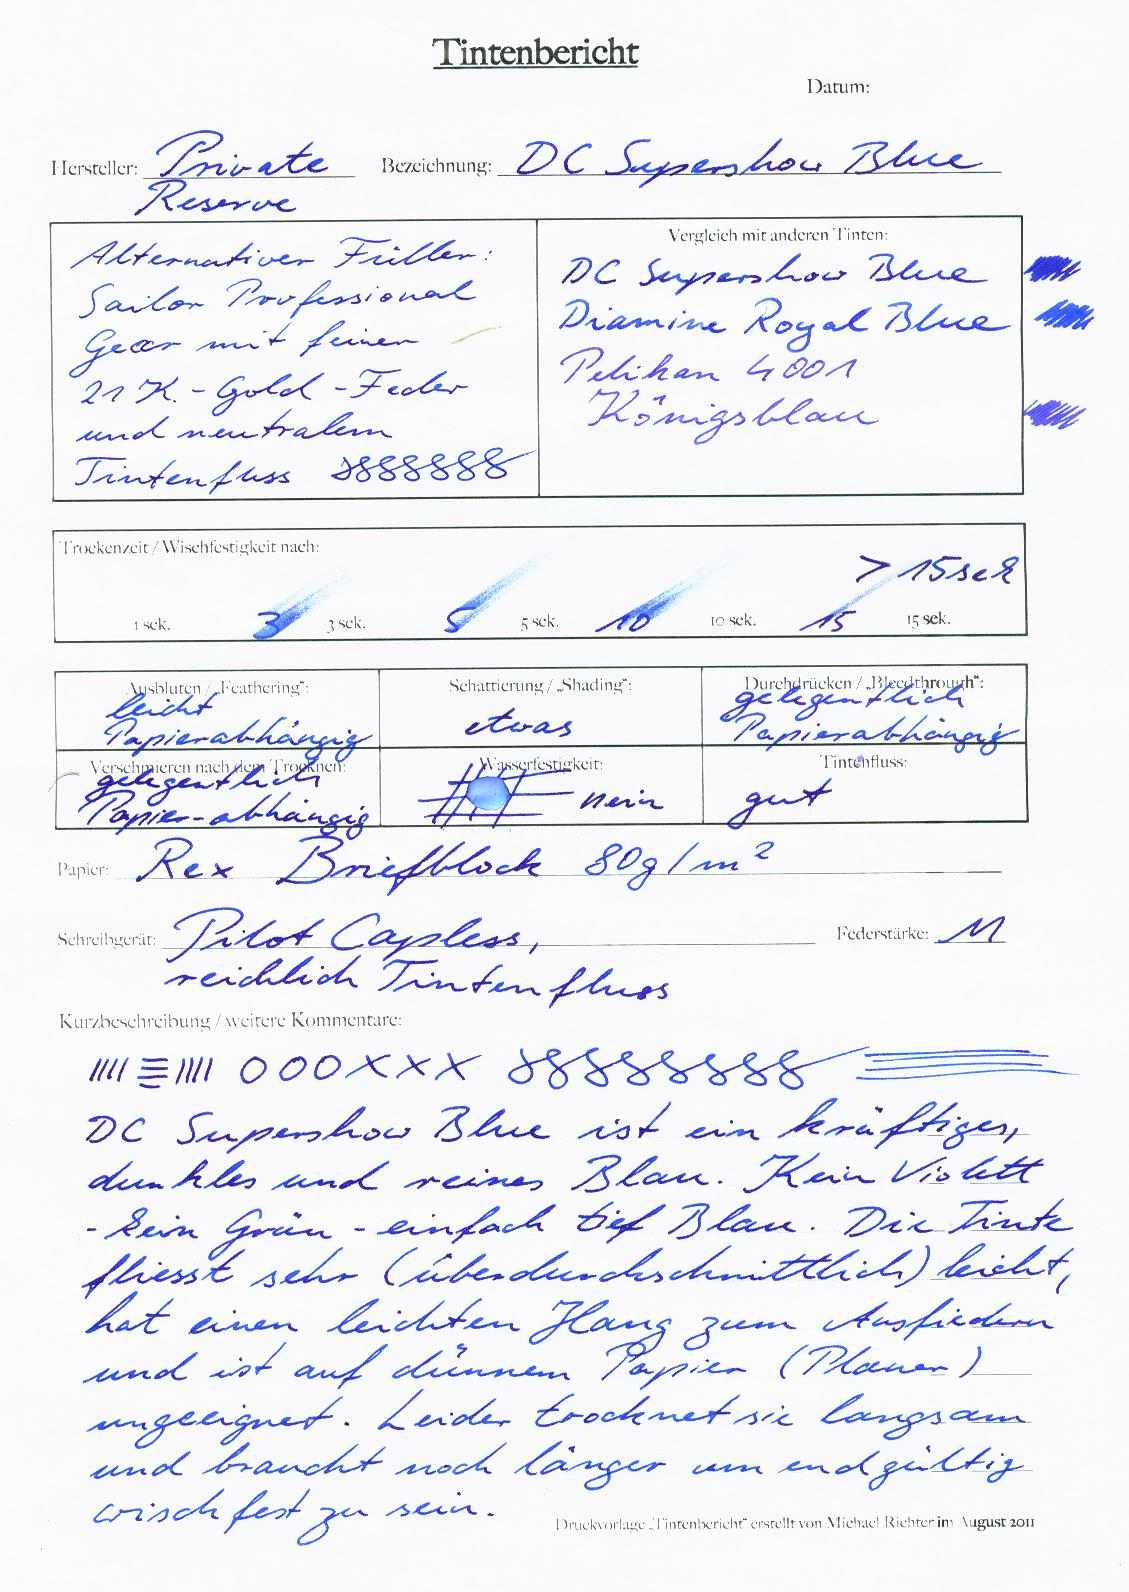 Tintenbericht
Datum:
Hersteller: Private Bezeichnung: DC Supershow Blue
Reserve
Alternativer Füller:
Sailor Professional
Gear mit feiner
21 K. - Gold - Feder
und neutralem
Tintenfluss
Vergleich mit anderen Tinten:
DC Supershow Blue
Diamine Royal Blue
Pelikan 4001
Königsblau
Trockenzeit / Wischfestigkeit nach:
> 15 sek
1 sek. 3 3 sek. 5 5 sek. 10 10 sek. 15 15 sek.
Ausbluten / „Feathering“:
leicht
Papierabhängig
Schattierung / „Shading“:
etwas
Durchdrücken / „Bleedthrough“:
gelegentlich
Papierabhängig
Verschmieren nach dem Trocknen:
gelegentlich
Papier-abhängig
Wasserfestigkeit:
nein
Tintenfluss:
gut
Papier: Rex Briefblock 80g/m²
Schreibgerät: Pilot Capless, Federstärke: M
reichlich Tintenfluss
Kurzbeschreibung / weitere Kommentare:
OOOXXX
DC Supershow Blue ist ein kräftiges,
dunkles und reines Blau. Kein Violett
- kein Grün - einfach tief Blau. Die Tinte
fliesst sehr (überdurchschnittlich) leicht,
hat einen leichten Hang zum Ausfiedern
und ist auf dünnem Papier (Planer)
ungeeignet. Leider trocknet sie langsam
und braucht noch länger um endgültig
wischfest zu sein.
Druckvorlage „Tintenbericht“ erstellt von Michael Richter im August 2011